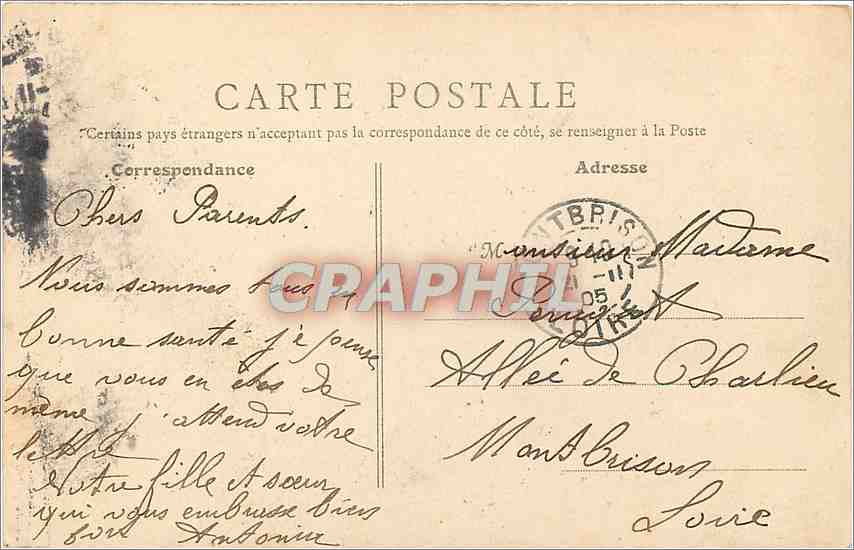 CARTE POSTALE
Certains pays étrangers n'acceptant pas la correspondance de ce côté, se renseigner à la Poste
Correspondance
Chers Parents.
Nous sommes tous en
bonne santé j'épense
que vous en êtes de
même j'attend votre
lettre
Votre fille et sœur
qui vous embrasse bien
fort Antonin
Adresse
Monsieur Madame
Allée de Charlieu
Montbrison
Loire
MONTBRISON
-11
05
LOIRE
CPAPHIL